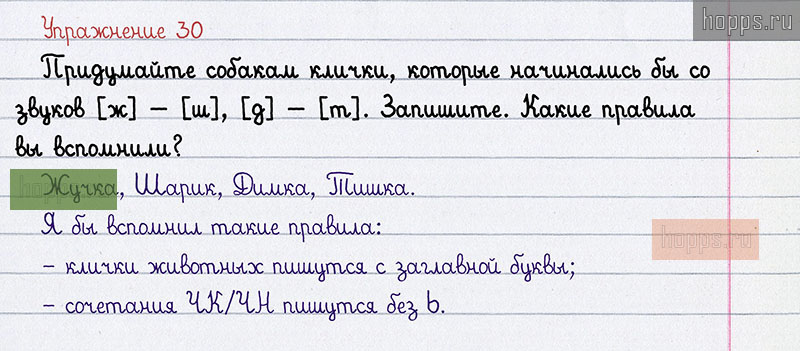 hopps.ru
Упражнение 30
Придумайте собакам клички, которые начинались бы со
звуков [ж] – [ш], [д] – [т]. Запишите. Какие правила
вы вспомнили?
Жучка, Шарик, Димка, Тишка.
Я бы вспомнил такие правила:
hopps.ru
– клички животных пишутся с заглавной буквы;
– сочетания ЧК/ЧН пишутся без Ь.